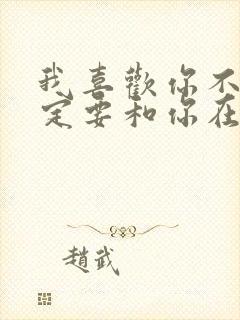 我喜歡你不
定要和你在
趙武